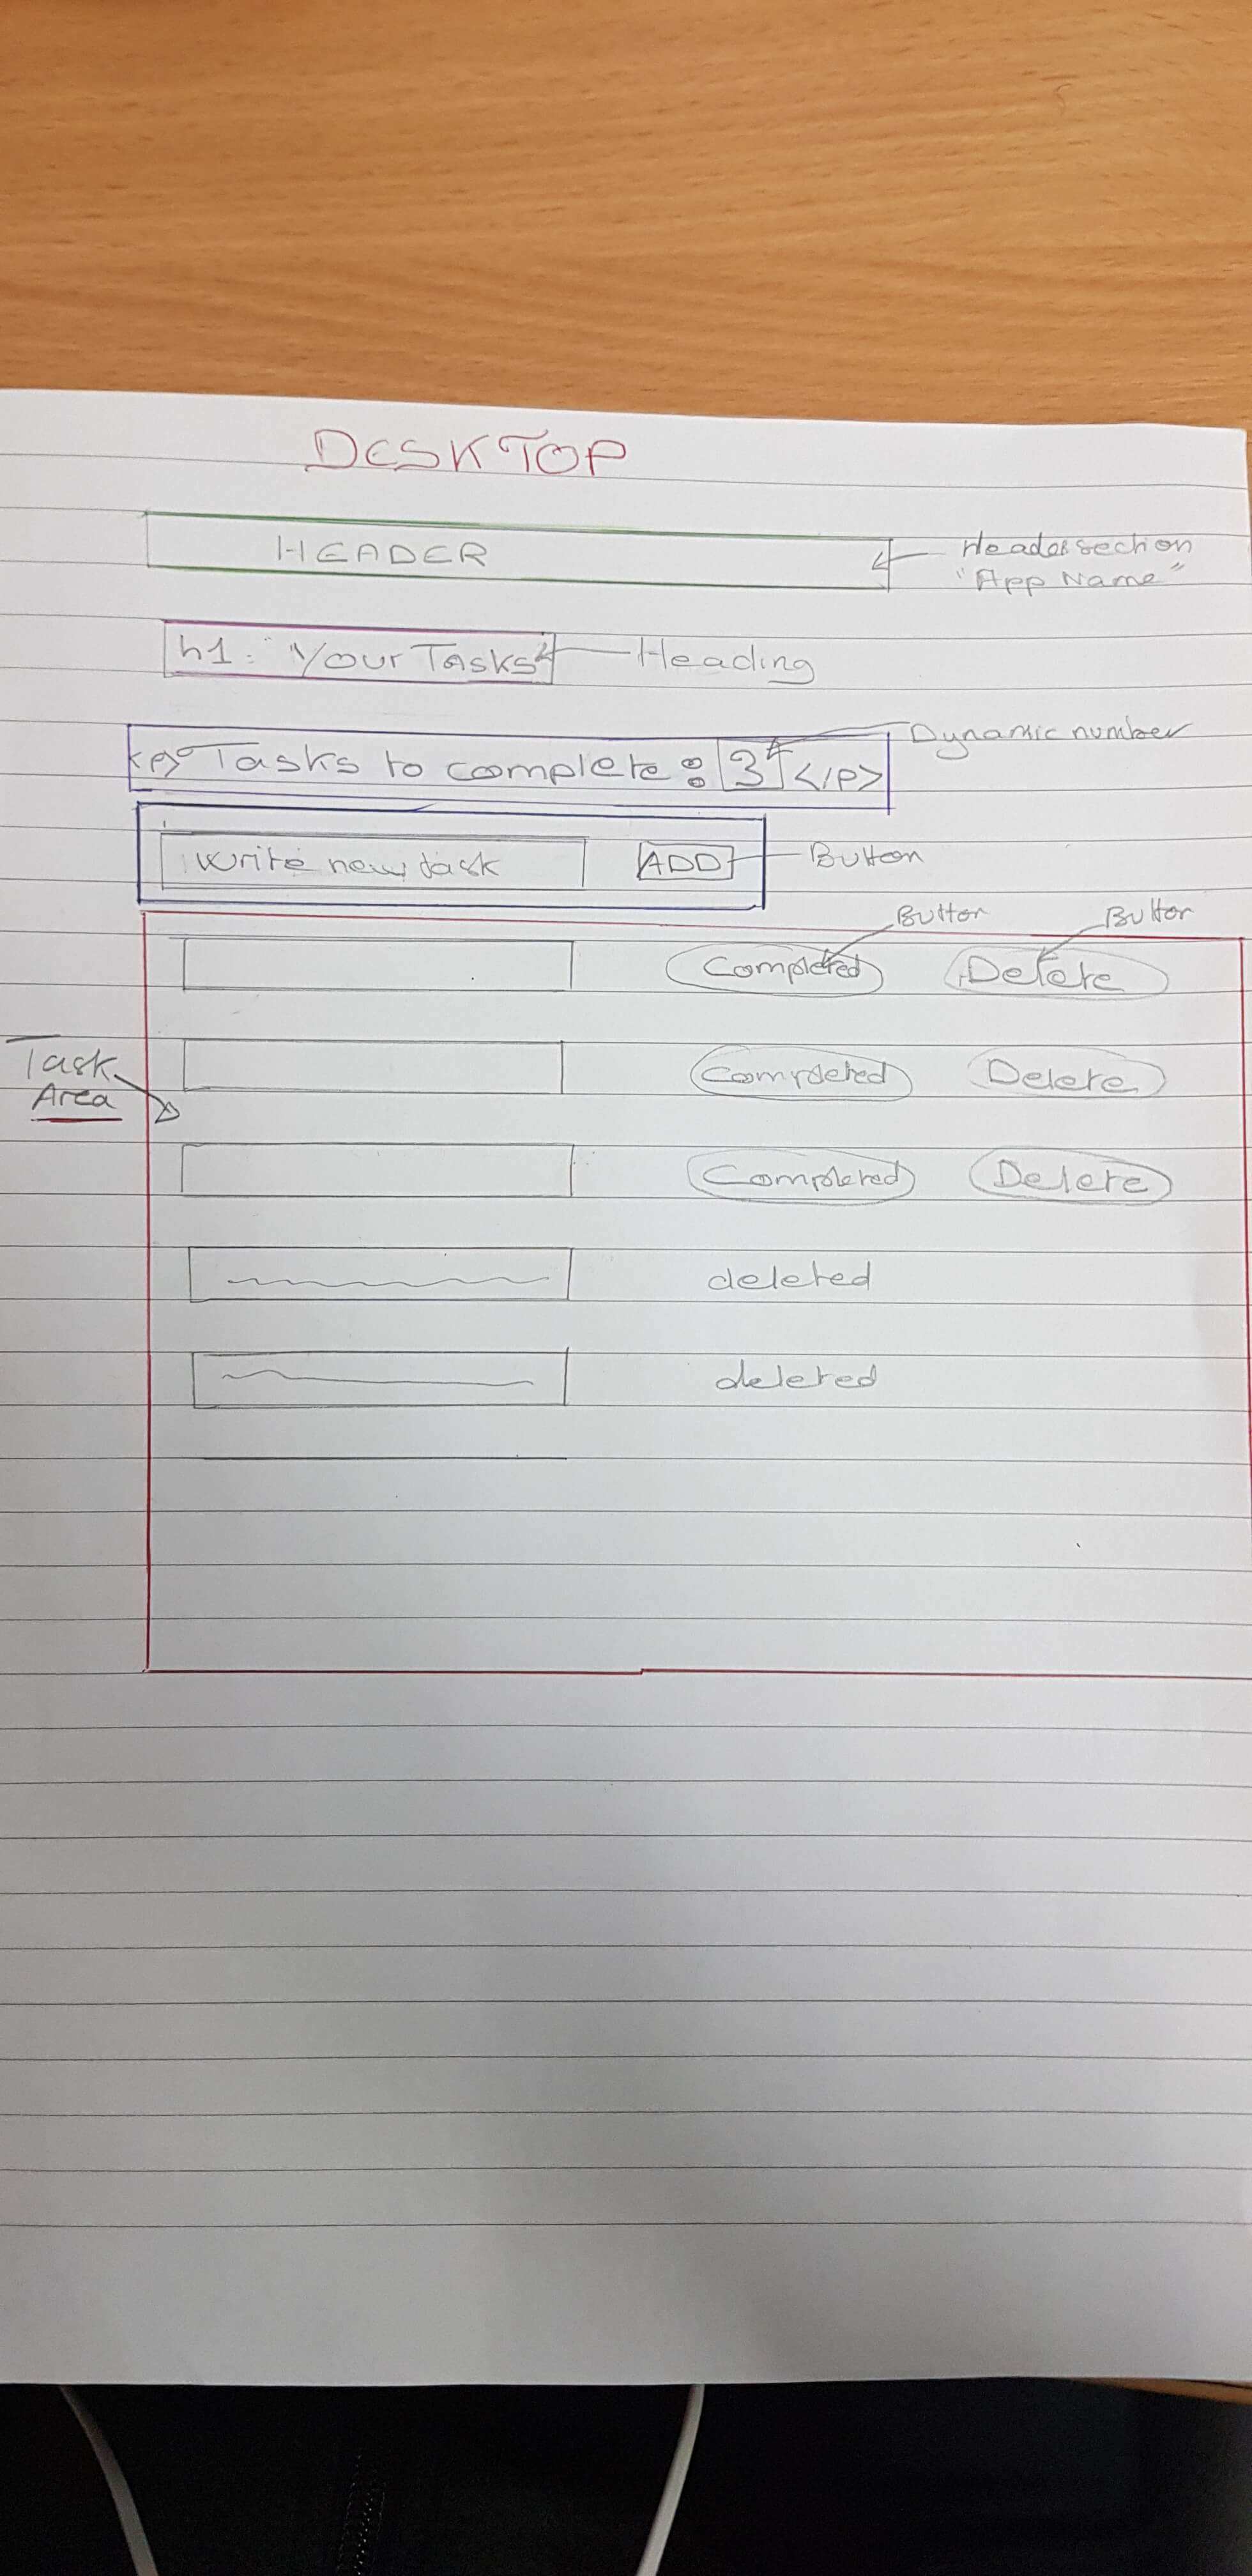 DESKTOP
HEADER
Header section
"App Name"
h1: "Your Tasks"
Heading
Dynamic number
<p> Tasks to complete : 3 </p>
write new task
ADD
Button
Button
Button
Completed
Delete
Task
Area
Completed
Delete
Completed
Delete
deleted
deleted